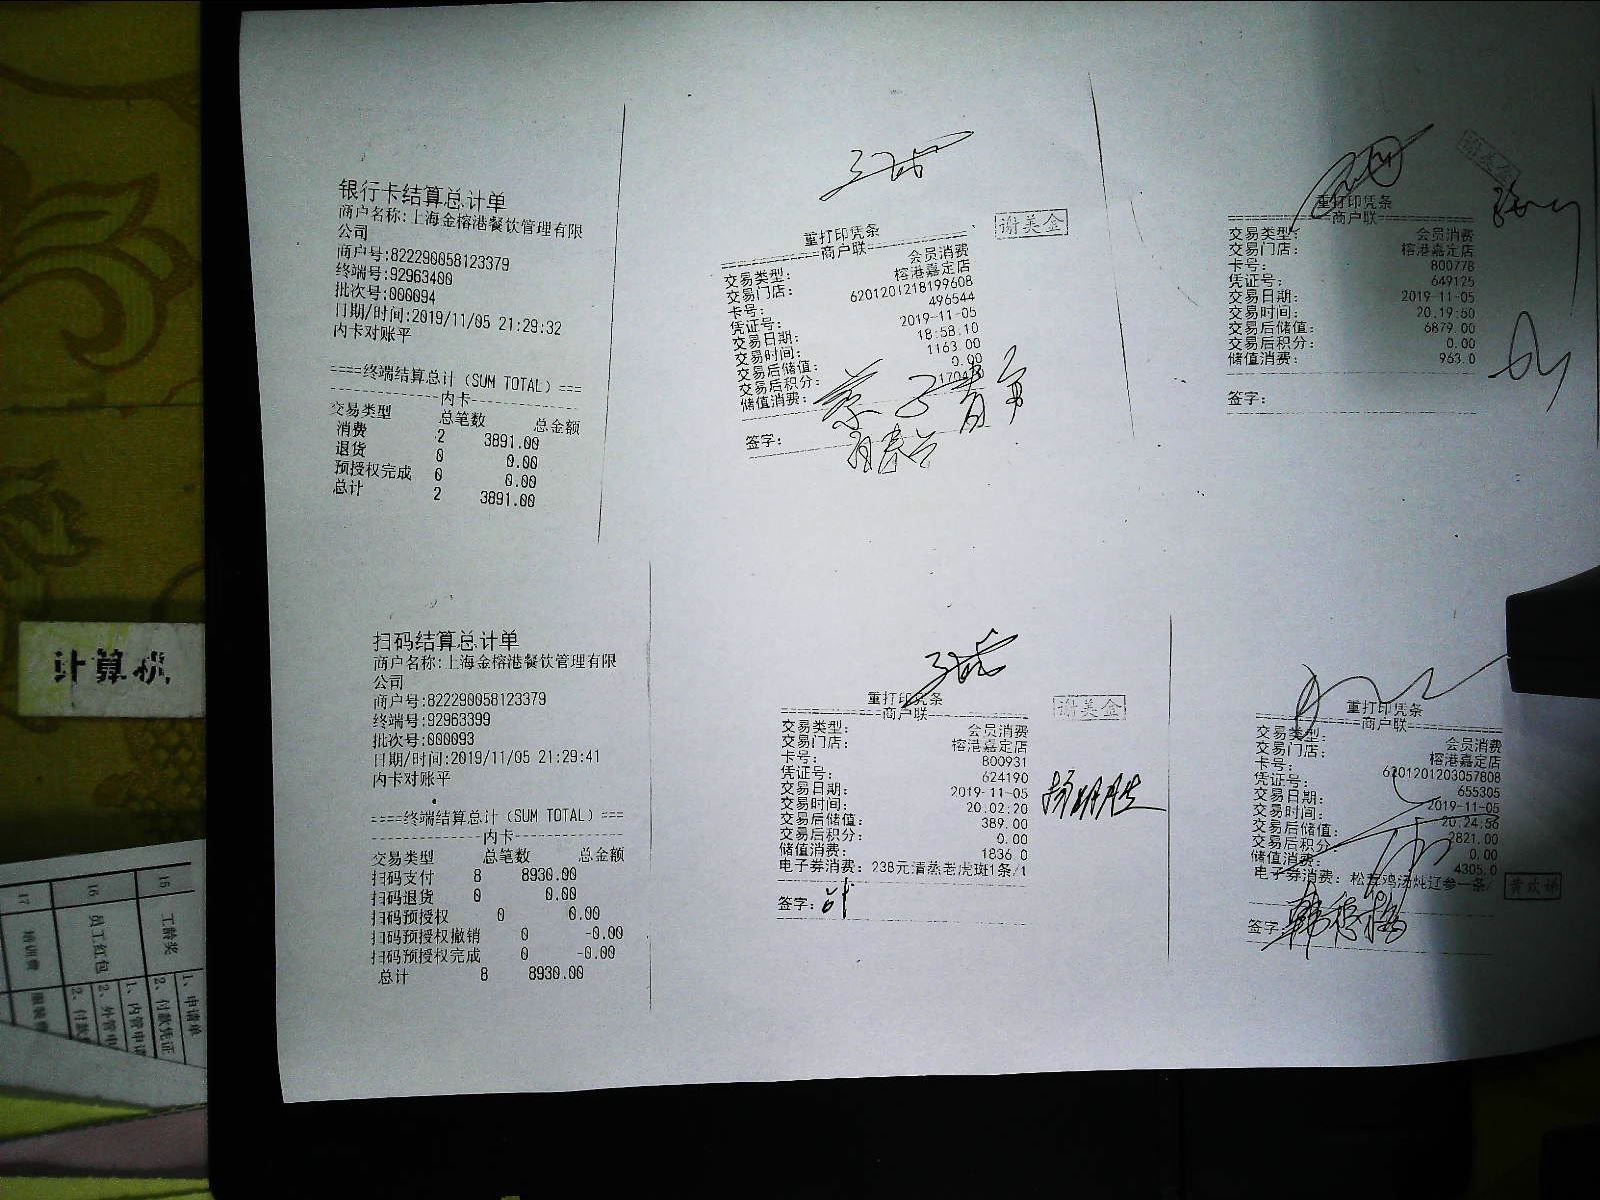 银行卡结算总计单
商户名称:上海金榕港餐饮管理有限
公司
商户号:822290058123379
终端号:92963400
批次号:000094
日期/时间:2019/11/05 21:29:32
内卡对账平
====终端结算总计（SUM TOTAL）===
内卡
交易类型 总笔数 总金额
消费 2 3891.00
退货 0 0.00
预授权完成 0 0.00
总计 2 3891.00
谢美金
重打印凭条
商户联
交易类型: 会员消费
交易门店: 榕港嘉定店
卡号: 6201201218199608
凭证号: 496544
交易日期: 2019-11-05
交易时间: 18:58.10
交易后储值: 1163.00
交易后积分: 0.00
储值消费:
签字:
谢美金
重打印凭条
商户联
交易类型: 会员消费
交易门店: 榕港嘉定店
卡号: 800778
凭证号: 649125
交易日期: 2019-11-05
交易时间: 20.19:50
交易后储值: 6879.00
交易后积分: 0.00
储值消费: 963.0
签字:
扫码结算总计单
商户名称:上海金榕港餐饮管理有限
公司
商户号:822290058123379
终端号:92963399
批次号:000093
日期/时间:2019/11/05 21:29:41
内卡对账平
====终端结算总计（SUM TOTAL）===
内卡
交易类型 总笔数 总金额
扫码支付 8 8930.00
扫码退货 0 0.00
扫码预授权 0 0.00
扫码预授权撤销 0 -0.00
扫码预授权完成 0 -0.00
总计 8 8930.00
重打印凭条
谢美金
商户联
交易类型: 会员消费
交易门店: 榕港嘉定店
卡号: 800931
凭证号: 624190
交易日期: 2019-11-05
交易时间: 20.02:20
交易后储值: 389.00
交易后积分: 0.00
储值消费: 1836.0
电子券消费: 238元清蒸老虎斑1条/1
签字:
重打印凭条
商户联
交易类型: 会员消费
交易门店: 榕港嘉定店
卡号: 6201201203057808
凭证号: 655305
交易日期: 2019-11-05
交易时间: 20.24.56
交易后储值: 2821.00
交易后积分: 0.00
储值消费: 4305.0
电子券消费: 松茸鸡汤炖辽参一条/
签字
计算机
15 工龄奖 1、申请单
2、付款凭证
16 员工红包 1、内管申请
2、外管申
17 培训费